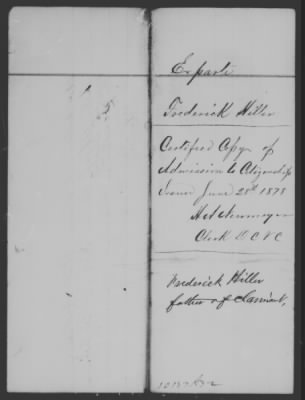 Exparte
Frederick Hiller
Certified Copy of
Admission to Citizenship
Issued June 28th 1878
Clerk D.C.N.C
Frederick Hiller
father of Claimant,